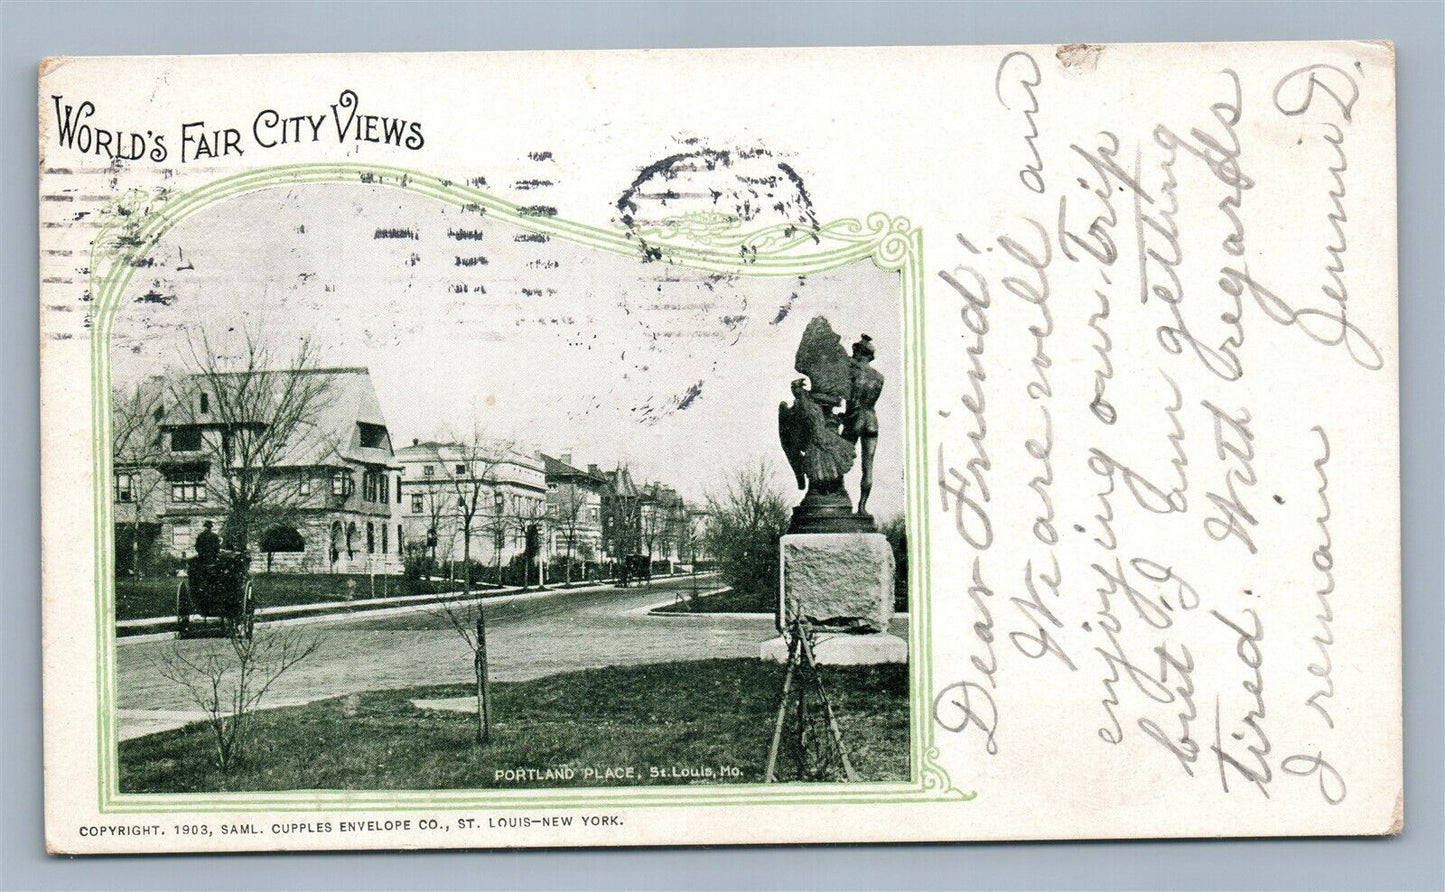 WORLD'S FAIR CITY VIEWS
PORTLAND PLACE, St. Louis, Mo.
COPYRIGHT. 1903, SAML. CUPPLES ENVELOPE CO., ST. LOUIS—NEW YORK.
Dear Friend!
We are well and
enjoying our Trip
but I am getting
tired. With regards
I remain Jennie D.